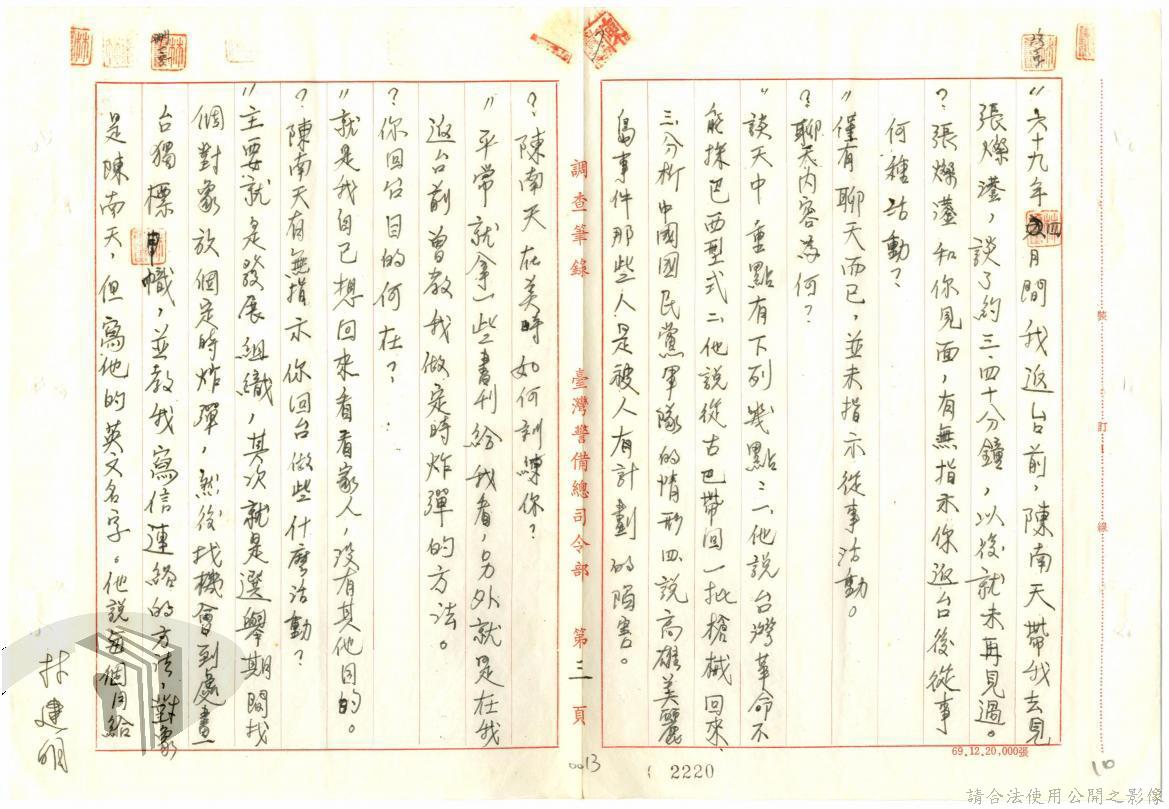 〃六十九年四月間我返台前，陳南天帶我去見
張燦鍙，談了約三、四十分鐘，以後就未再見過。
？張燦鍙和你見面，有無指示你返台後從事
何種活動？
〃僅有聊天而已，並未指示從事活動。
？聊天內容為何？
〃談天中重點有下列幾點：一、他說台灣革命不
能採巴西型式二、他說從古巴帶回一批槍械回來、
三、分析中國國民黨軍隊的情形四、說高雄美麗
島事件那些人是被人有計劃的陷害。
調查筆錄
臺灣警備總司令部
第三頁
？陳南天在美時如何訓練你？
〃平常就拿一些書刊給我看，另外就是在我
返台前曾教我做定時炸彈的方法。
？你回台目的何在？
〃就是我自己想回來看看家人，沒有其他目的。
？陳南天有無指示你回台做些什麼活動？
〃主要就是發展組織，其次就是選舉期間找
個對象放個定時炸彈，然後找機會到處畫
台獨標幟，並教我寫信連絡的方法，對象
是陳南天，但寫他的英文名字。他說每個月給
林建明
裝
訂
線
69.12.20,000張
0013
2220
10
請合法使用公開之影像